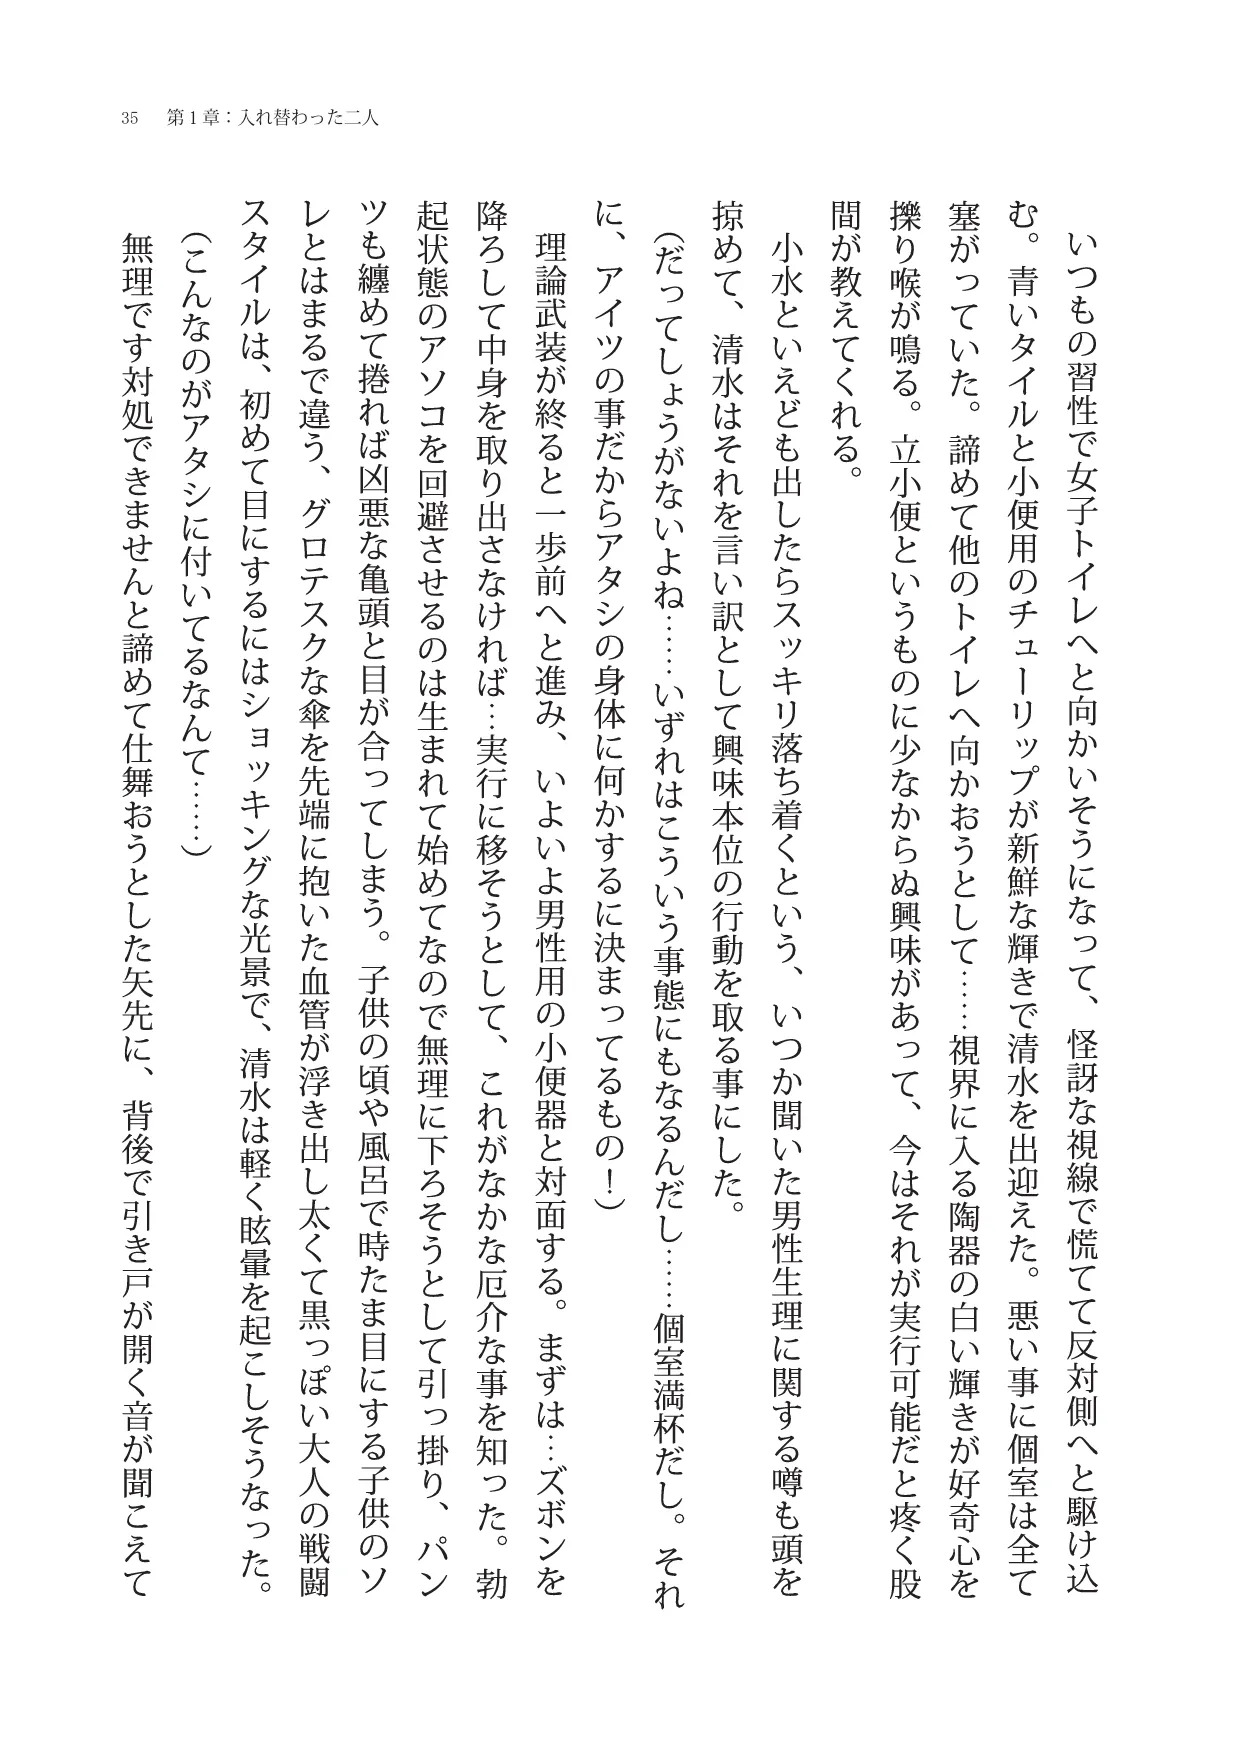 35 第1章：入れ替わった二人
いつもの習性で女子トイレへと向かいそうになって、怪訝な視線で慌てて反対側へと駆け込
む。青いタイルと小便用のチューリップが新鮮な輝きで清水を出迎えた。悪い事に個室は全て
塞がっていた。諦めて他のトイレへ向かおうとして……視界に入る陶器の白い輝きが好奇心を
擽り喉が鳴る。立小便というものに少なからぬ興味があって、今はそれが実行可能だと疼く股
間が教えてくれる。
小水といえども出したらスッキリ落ち着くという、いつか聞いた男性生理に関する噂も頭を
掠めて、清水はそれを言い訳として興味本位の行動を取る事にした。
（だってしょうがないよね……いずれはこういう事態にもなるんだし……個室満杯だし。それ
に、アイツの事だからアタシの身体に何かするに決まってるもの！）
理論武装が終ると一歩前へと進み、いよいよ男性用の小便器と対面する。まずは…ズボンを
降ろして中身を取り出さなければ…実行に移そうとして、これがなかな厄介な事を知った。勃
起状態のアソコを回避させるのは生まれて始めてなので無理に下ろそうとして引っ掛り、パン
ツも纏めて捲れば凶悪な亀頭と目が合ってしまう。子供の頃や風呂で時たま目にする子供のソ
レとはまるで違う、グロテスクな傘を先端に抱いた血管が浮き出し太くて黒っぽい大人の戦闘
スタイルは、初めて目にするにはショッキングな光景で、清水は軽く眩暈を起こしそうなった。
（こんなのがアタシに付いてるなんて……）
無理です対処できませんと諦めて仕舞おうとした矢先に、背後で引き戸が開く音が聞こえて